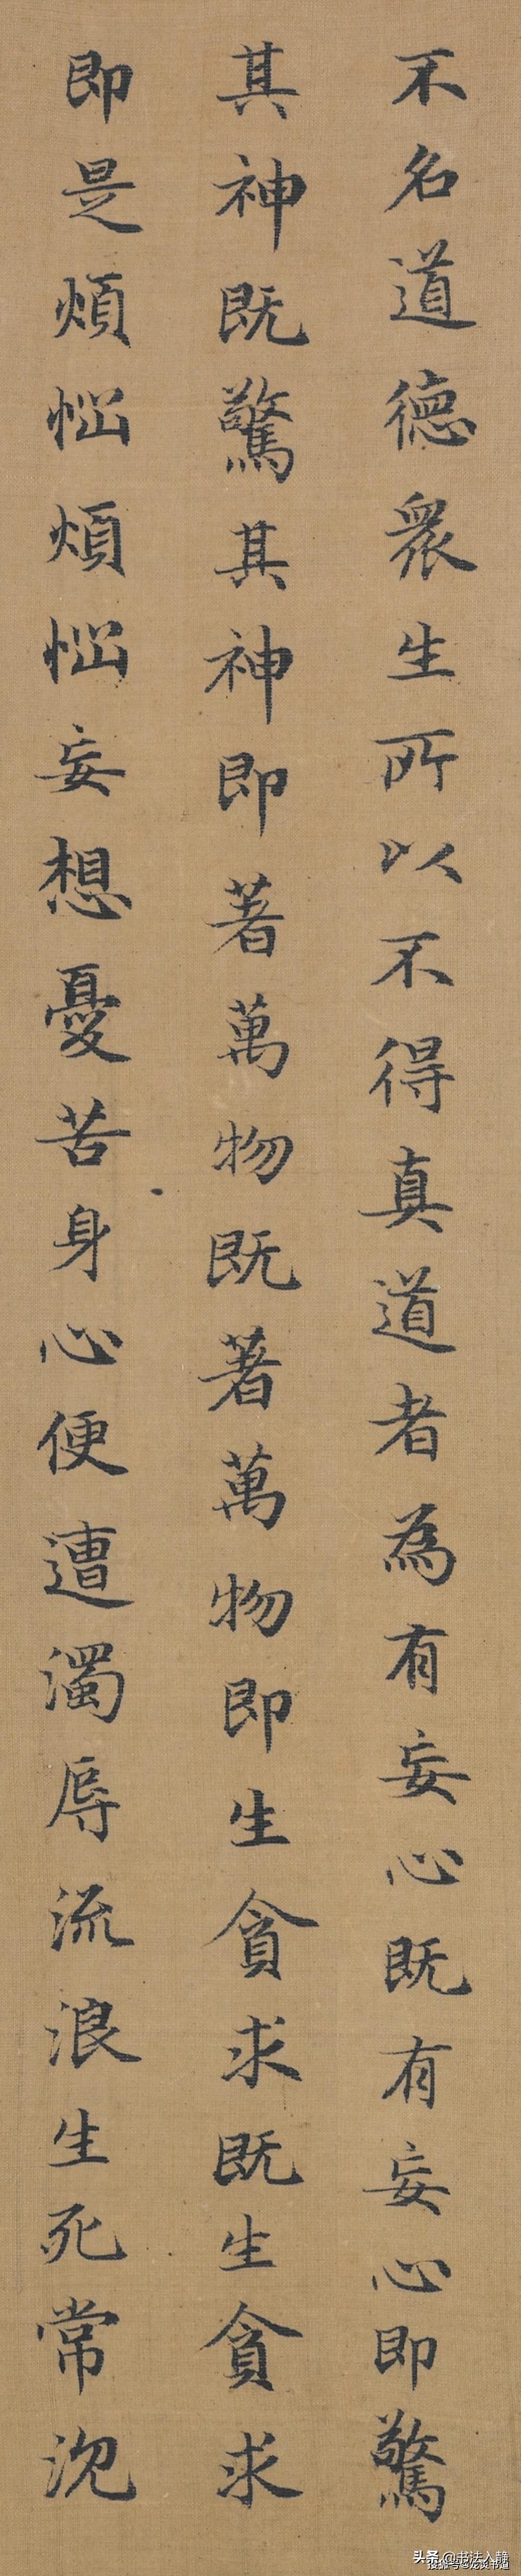 不名道德衆生所以不得真道者為有妄心既有妄心即驚
其神既驚其神即著萬物既著萬物即生貪求既生貪求
即是煩惱煩惱妄想憂苦身心便遭濁辱流浪生死常沉
头条 @书法入静